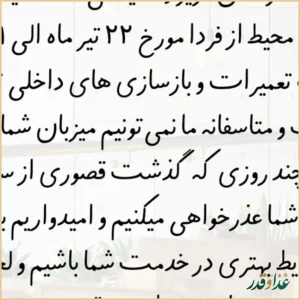 محیط از فردا مورخ ۲۲ تیر ماه الی
تعمیرات و بازسازی های داخلی
و متاسفانه ما نمی تونیم میزبان شما
چند روزی که گذشت قصوری از
شما عذرخواهی میکنیم و امیدواریم
بهتری در خدمت شما باشیم و
غذاوقدر